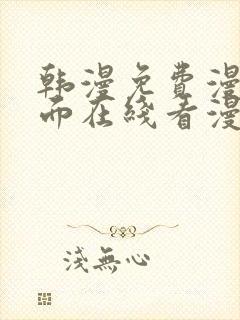 韩漫免费漫
而在线看漫
淺無心